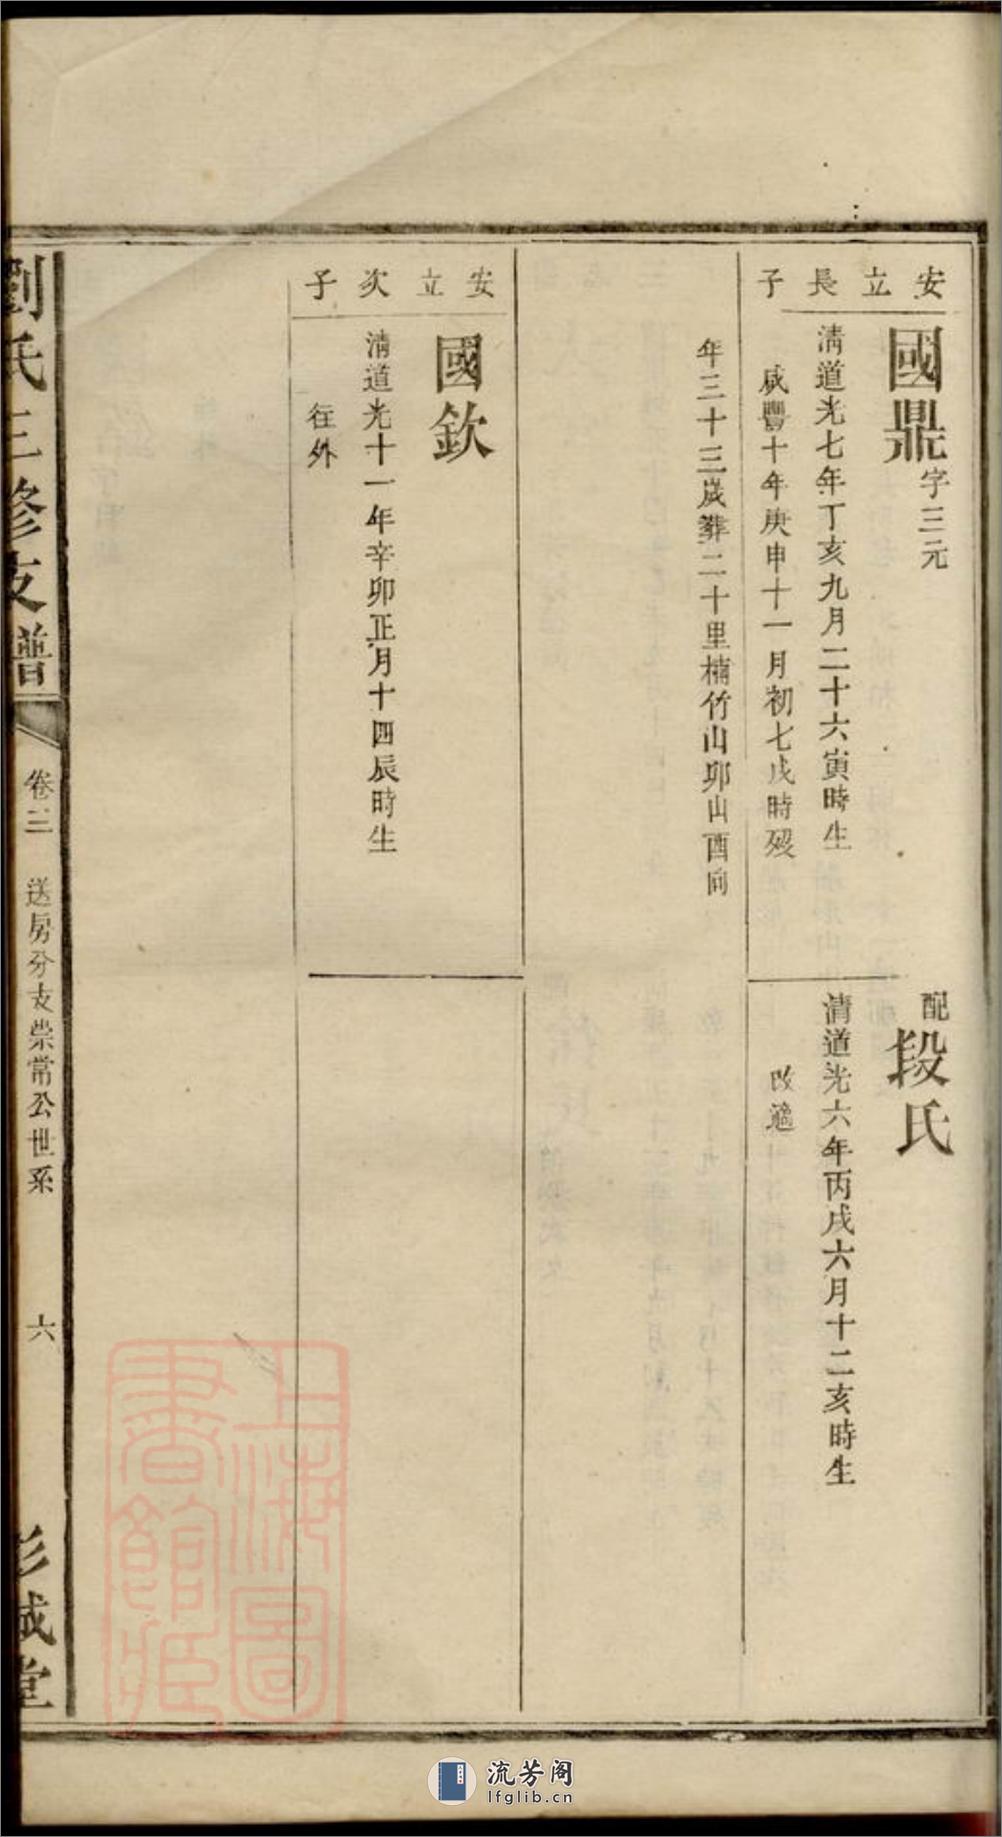 安立長子
國鼎字三元
清道光七年丁亥九月二十六寅時生
咸豐十年庚申十一月初七戌時歿
年三十三歲葬二十里楠竹山卯山酉向
配段氏
清道光六年丙戌六月十二亥時生
改適
安立次子
國欽
清道光十一年辛卯正月十四辰時生
往外
劉氏三修支譜
卷三 送房分支崇常公世系
六
彭城堂
上海圖書館藏
流芳阁
lfglib.cn